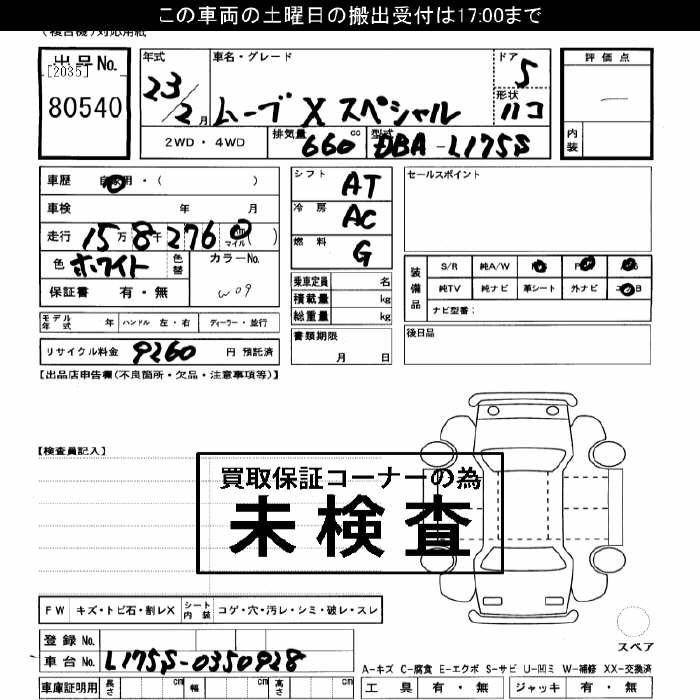 この車両の土曜日の搬出受付は17:00まで
(複合機)対応用紙
出品No. 年式 車名・グレード ドア 評価点
[2035] 23 5
80540 2月 ムーブ X スペシャル 形状 ハコ
2WD・4WD 排気量 660 cc 型式 DBA-L175S 内装
車歴 自家用・( ) シフト AT セールスポイント
車検 年 月 冷房 AC
走行 15万8千276 km マイル ( ) 燃料 G
色 ホワイト 色替 カラーNo. 装備品 S/R 純A/W
保証書 有・無 W09 乗車定員 名 純TV 純ナビ 革シート 外ナビ
積載量 kg ナビ型番:
モデル年式 年 ハンドル 左・右 ディーラー・並行 総重量 kg
リサイクル料金 9260 円 預託済 書類期限 月 日 後日品
【出品店申告欄(不良箇所・欠品・注意事項等)】
【検査員記入】
買取保証コーナーの為
未検査
FW キズ・トビ石・割レX シート内装 コゲ・穴・汚レ・シミ・破レ・スレ
登録No. スペア
車台No. L175S-0350928
A-キズ C-腐食 E-エクボ S-サビ U-凹ミ W-補修 XX-交換済
車庫証明用 長さ cm 幅 cm 高さ cm 工具 有・無 ジャッキ 有・無